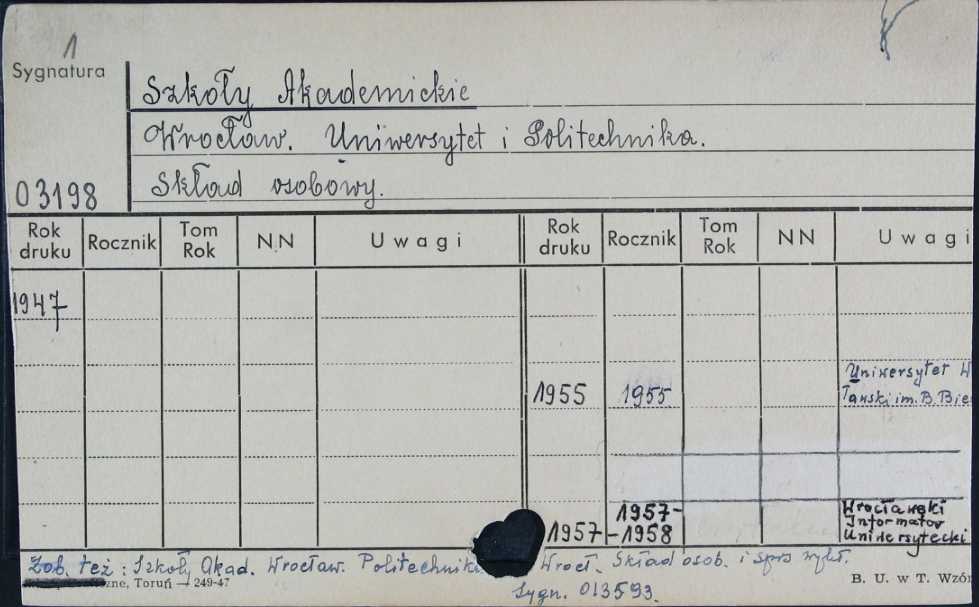 1
Sygnatura
Szkoły Akademickie
Wrocław. Uniwersytet i Politechnika.
03198
Skład osobowy.
Rok druku Rocznik Tom Rok NN Uwagi Rok druku Rocznik Tom Rok NN Uwagi
1947
1955 1955 Uniwersytet W
łanski im. B. Bie
1957 1957-1958 Wrocławski Informator Uniwersytecki
Zob. też: Szkoły Akad. Wrocław. Politechnika Wrocł. Skład osob. i
zne, Toruń — 249-47
B. U. w T. Wzór
Sygn. 013593.